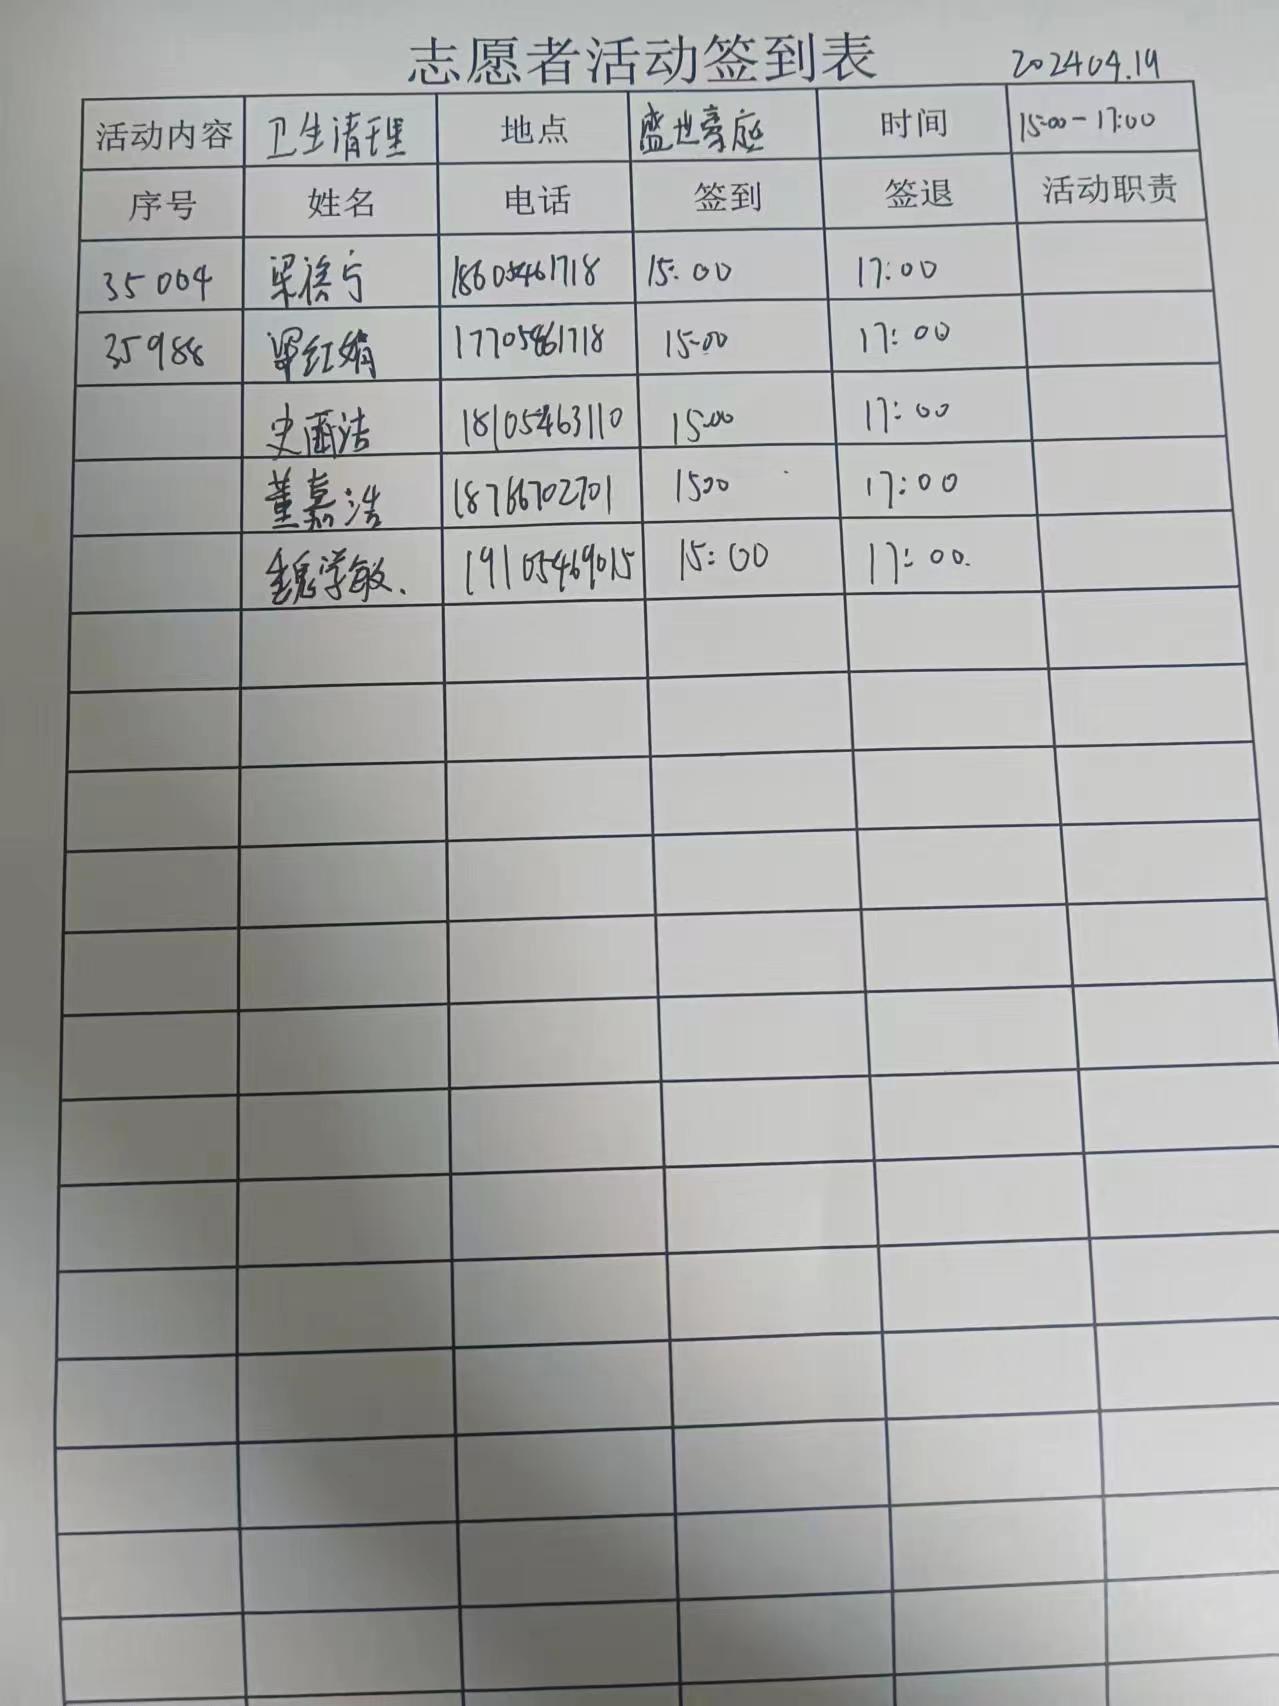 志愿者活动签到表 20240419
活动内容 卫生清理 地点 盛世豪庭 时间 15:00-17:00
序号 姓名 电话 签到 签退 活动职责
35004 梁 18605461718 15:00 17:00
35988 梁红娟 17705461718 15:00 17:00
史雨洁 18105463110 15:00 17:00
董嘉浩 18766702701 1500 17:00
魏学敏. 19105469015 15:00 17:00.